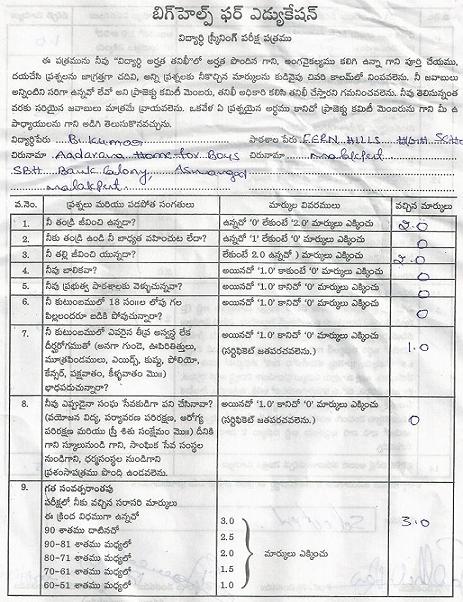 బిగ్‌హెల్ప్ ఫర్ ఎడ్యుకేషన్
విద్యార్థి స్క్రీనింగ్ పరీక్ష పత్రము
ఈ పత్రమును నీవు "విద్యార్థి అర్హత తనిఖీ"లో అర్హత పొందిన గాని, అంగవైకల్యము కలిగి ఉన్నా గాని పూర్తి చేయుము,
దయచేసి ప్రశ్నలను జాగ్రత్తగా చదివి, అన్ని ప్రశ్నలకు నీకొచ్చిన మార్కులను కుడివైపు చివరి కాలమ్‌లో నింపవలెను. నీ జవాబులు
అన్నింటిని సరిగా ఉన్నవో లేవో అని ప్రాజెక్టు కమిటీ మెంబరు, తనిఖీ అధికారి కలిసి తనిఖీ చేస్తారని గమనించవలెను. నీవు తెలిసినంత
వరకు సరియైన జవాబులు మాత్రమే వ్రాయవలెను. ఒకవేళ ఏ ప్రశ్నయైన అర్థము కానిచో ప్రాజెక్టు కమిటీ మెంబరును గాని మీ ఉ
పాధ్యాయులను గాని అడిగి తెలుసుకొనవచ్చును.
విద్యార్థిపేరు B. Kumar పాఠశాల పేరు FERN HILLS HIGH
చిరునామా Aadarana Home for Boys చిరునామా malakpet
SBH Bank Colony, Asmangad
malakpet.
వ.నెం. ప్రశ్నలు మరియు పడపోత సంగతులు మార్కుల వివరములు వచ్చిన మార్కులు
1. నీ తండ్రి జీవించి ఉన్నడా? ఉన్నచో '0' లేకుంటే '2.0' మార్కులు ఎక్కించు 2.0
2. నీకు తండ్రి ఉండి నీ బాధ్యత వహించుట లేదా? ఉన్నచో '1' లేకుంటే '0' మార్కులు ఎక్కించు 0
3. నీ తల్లి జీవించి యున్నదా? లేకుంటే 2.0 ఉన్నచో ) మార్కులు ఎక్కించు 2.0
4. నీవు బాలికవా? అయినచో '1.0' కాకుంటే '0' మార్కులు ఎక్కించు 0
5. నీవు ప్రభుత్వ పాఠశాలకు వెళ్ళుచున్నవా? అయినచో '1.0' కానిచో '0' మార్కులు ఎక్కించు 0
6. నీ కుటుంబములో 18 సం॥ల లోపు గల అయినచో '1.0' కానిచో '0' మార్కులు ఎక్కించు 0
పిల్లలందరూ బడికి పోవుచున్నారా?
7. నీ కుటుంబములో ఎవరైన తీవ్ర అస్వస్థ లేక అయినచో '1.0' కానిచో '0' మార్కులు ఎక్కించు 1.0
దీర్ఘరోగముతో (అనగా గుండె, ఊపిరితిత్తులు, (సర్టిఫికెట్ జతపరచవలెను.)
మూత్రపిండములు, ఎయిడ్స్, కుష్ఠు, పోలియో,
కేన్సర్, పక్షవాతం, కీళ్ళవాతం మొ॥)
భాధపడుచున్నారా?
8. నీవు ఎప్పుడైనా సంఘ సేవకుడిగా పని చేసినావా? అయినచో '1.0' కానిచో '0' మార్కులు ఎక్కించు 0
(వయోజన విద్య, పర్యావరణ పరిరక్షణ, ఆరోగ్య (సర్టిఫికెట్ జతపరచవలెను.)
పరిరక్షణ మరియు స్త్రీ శిశు సంక్షేమం మొ॥) దీనికి
గాని స్కూలునుండి గాని, సాంఘిక సేవ సంస్థల
నుండిగాని, ధర్మసంస్థల నుండిగాని
ప్రశంసాపత్రము పొంది ఉండవలెను.
9. గత సంవత్సరాంతపు
పరీక్షలో నీకు వచ్చిన సరాసరి మార్కులు
ఈ క్రింద విధముగా ఉన్నచో 3.0
90 శాతము దాటినచో 3.0
90-81 శాతము మధ్యలో 2.5
80-71 శాతము మధ్యలో 2.0 మార్కులు ఎక్కించు
70-61 శాతము మధ్యలో 1.5
60-51 శాతము మధ్యలో 1.0